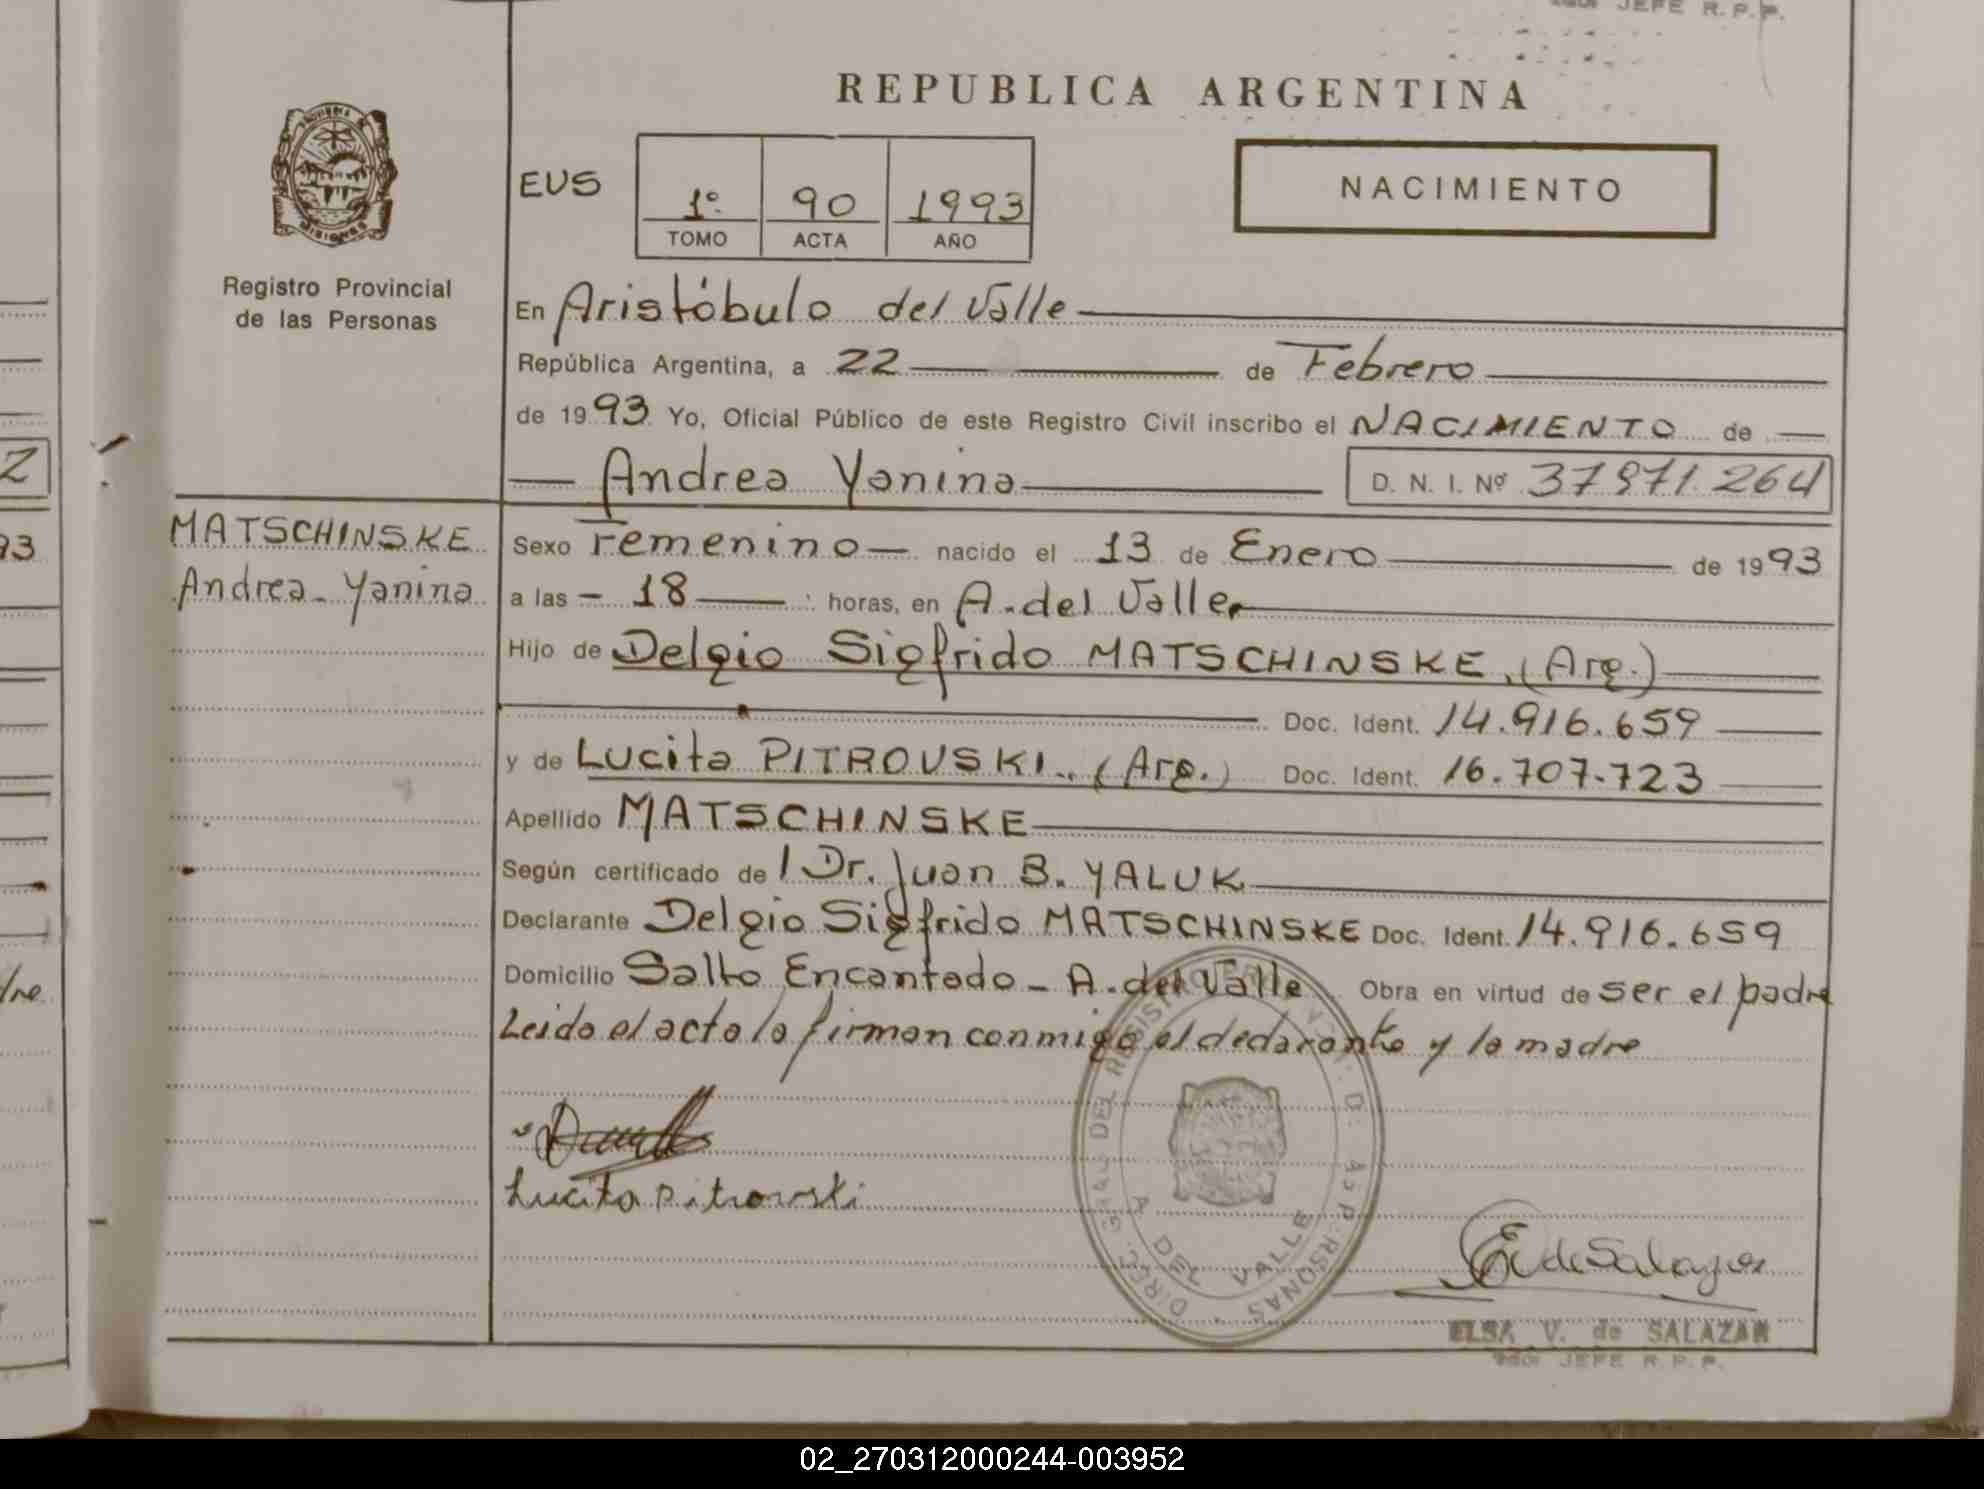 JEFE R. P. P.
REPUBLICA ARGENTINA
EUS
1º 90 1993
TOMO ACTA AÑO
NACIMIENTO
MISIONES
Registro Provincial
de las Personas
En Aristóbulo del Valle
República Argentina, a 22 de Febrero
de 1993 Yo, Oficial Público de este Registro Civil inscribo el NACIMIENTO de
Andrea Yanina D. N. I. Nº 37971.264
MATSCHINSKE
Andrea Yanina
93
Sexo Femenino nacido el 13 de Enero de 1993
a las 18 horas, en A. del Valle
Hijo de Delgio Sigfrido MATSCHINSKE, (Arg.)
Doc. Ident. 14.916.659
y de Lucita PITROVSKI, (Arg.) Doc. Ident. 16.707.723
Apellido MATSCHINSKE
Según certificado de l Dr. Juan B. YALUK
Declarante Delgio Sigfrido MATSCHINSKE Doc. Ident. 14.916.659
Domicilio Salto Encantado - A. del Valle Obra en virtud de ser el padre
Leido el acto lo firman conmigo el declarante y la madre
Lucita Pitrowski
A DEL VALLE
E V de Salazar
ELSA V. de SALAZAR
JEFE R. P. P.
02_270312000244-003952